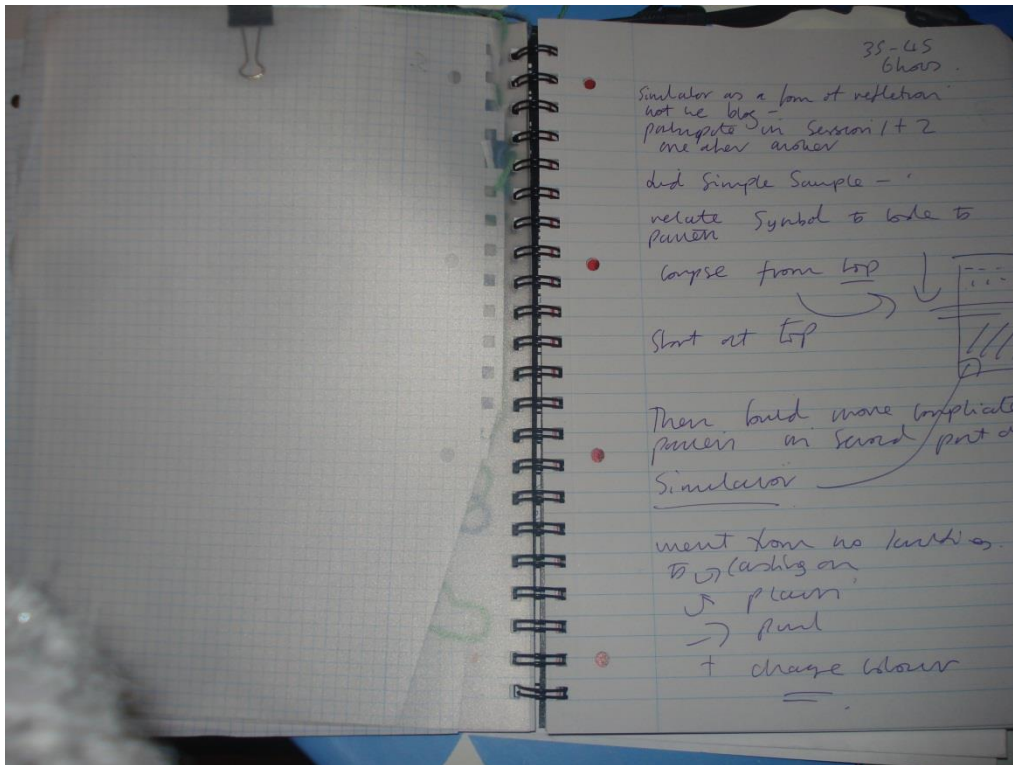 35-45
6 hours.
Simulator as a form of refletion
not we blog -
patucpate in Session 1 + 2
one after another
did Simple Sample -
relate Symbol to code to
pattern
from top
Start at top
Then build more complicate
pattern in Second part
Simulator
went from no knitting
to casting on
plain
purl
+ change colour